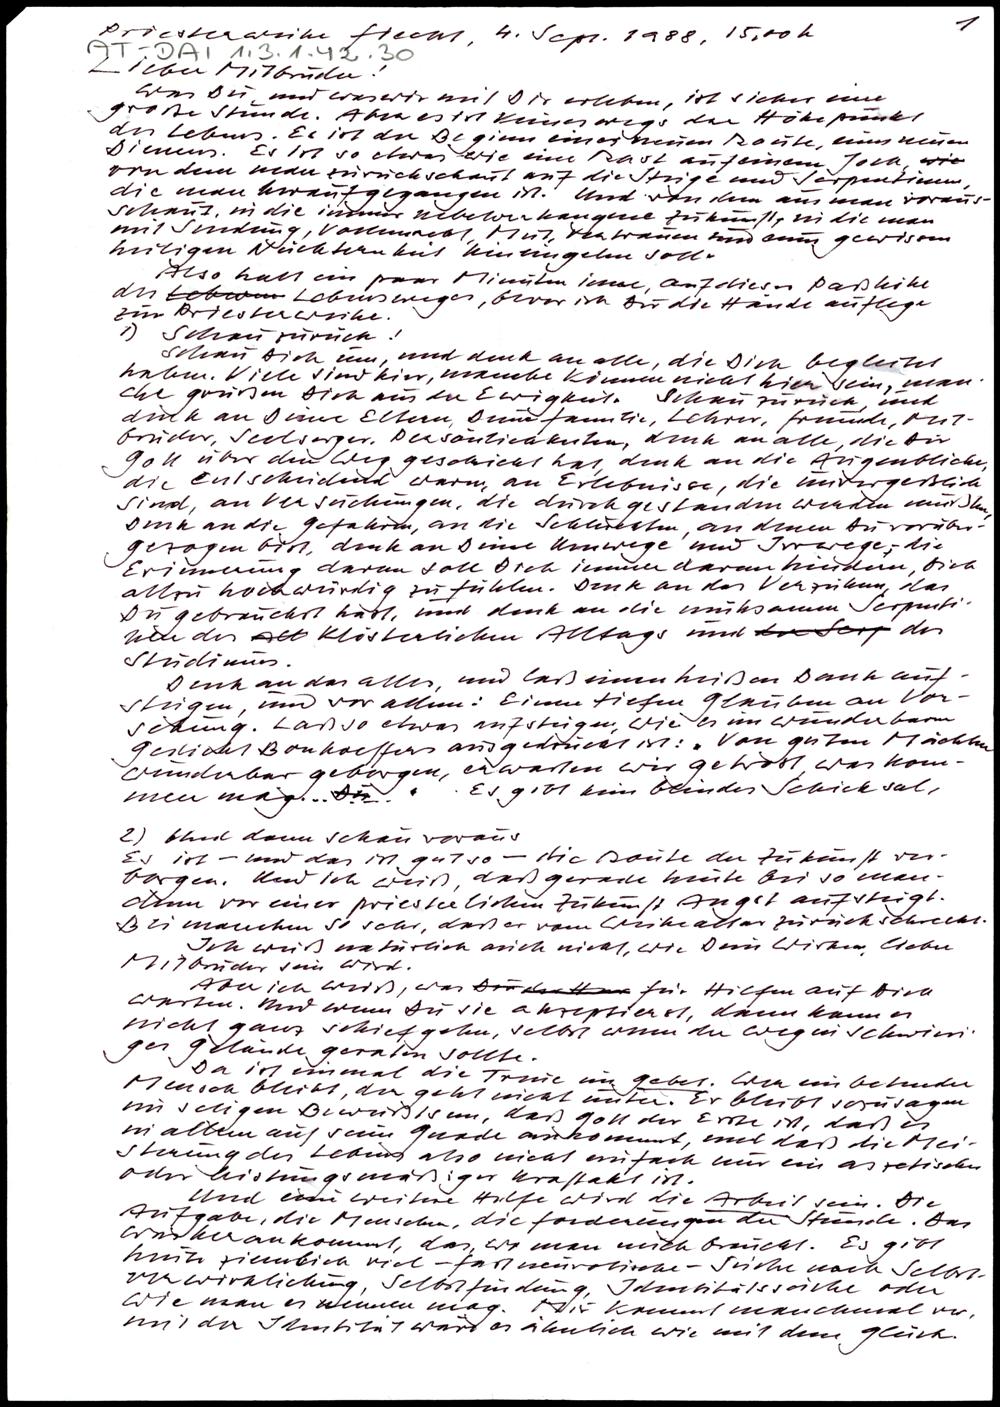 Priesterweihe Fiecht, 4. Sept. 1988, 15,00 h
1
AT-DAI 1.3.1.42.30
Lieber Mitbruder!
Was Du, und was wir mit Dir erleben, ist sicher eine
große Stunde. Aber es ist keineswegs der Höhepunkt
des Lebens. Es ist der Beginn einer neuen Route, eines neuen
Dienens. Es ist so etwas wie eine Rast auf einem Joch, wie
von dem man zurückschaut auf die Steige und Serpentinen,
die man heraufgegangen ist. Und von dem aus man voraus-
schaut, in die immer nebelverhangene Zukunft, in die man
mit Sendung, Vollmacht, Mut, Vertrauen und einer gewissen
heiligen Nüchternheit hineingehen soll.
Also halt ein paar Minuten inne, auf dieser Paßhöhe
des Lebens Lebensweges, bevor ich Dir die Hände auflege
zur Priesterweihe.
1) Schau zurück!
Schau Dich um, und denk an alle, die Dich begleitet
haben. Viele sind hier, manche können nicht hier sein, man-
che grüßen Dich aus der Ewigkeit. Schau zurück, und
denk an Deine Eltern, Deine Familie, Lehrer, Freunde, Mit-
brüder, Seelsorger, Persönlichkeiten, denk an alle, die Dir
Gott über den Weg geschickt hat, denk an die Augenblicke,
die entscheidend waren, an Erlebnisse, die unvergeßlich
sind, an Versuchungen, die durchgestanden werden mußten,
Denk an die Gefahren, an die Schluchten, an denen Du vorüber-
gezogen bist, denk an Deine Umwege und Irrwege; die
Erinnerung daran soll Dich immer daran hindern, Dich
allzu hochwürdig zu fühlen. Denk an das Verzeihen, das
Du gebraucht hast, und denk an die mühsamen Serpenti-
nen des All klösterlichen Alltags und der Serp des
Studiums.
Denk an das alles, und laß einen heißen Dank auf-
steigen, und vor allem: Einen tiefen Glauben an Vor-
sehung. Laß so etwas aufsteigen, wie es im wunderbaren
Gedicht Bonhoeffers ausgedrückt ist: "Von guten Mächten
wunderbar geborgen, erwarten wir getrost, was kom-
men mag... " Es gibt kein blindes Schicksal.
2) Und dann schau voraus
Es ist – und das ist gut so – die Route der Zukunft ver-
borgen. Und ich weiß, daß gerade heute bei so man-
chem vor einer priesterlichen Zukunft Angst aufsteigt.
Bei manchen so sehr, daß er vom Weihealtar zurückschreckt.
Ich weiß natürlich auch nicht, wie Dein Wirken, lieber
Mitbruder sein wird.
Aber ich weiß, was für Hilfen auf Dich
warten. Und wenn Du sie akzeptierst, dann kann es
nicht ganz schiefgehn, selbst wenn der Weg in schwieri-
ges Gelände geraten sollte.
Da ist einmal die Treue im Gebet. Wer ein betender
Mensch bleibt, der geht nicht unter. Er bleibt sozusagen
im seligen Bewußtsein, daß Gott der Erste ist, daß es
in allem auf seine Gnade ankommt, und daß die Mei-
sterung des Lebens also nicht einfach nur ein asketischer
oder leistungsmäßiger Kraftakt ist.
Und eine weitere Hilfe wird die Arbeit sein. Die
Aufgabe, die Menschen, die Forderungen der Stunde. Das
worauf es ankommt, das, wo man mich braucht. Es gibt
heute ziemlich viel – fast neurotische – Suche nach Selbst-
verwirklichung, Selbstfindung, Identitätssuche oder
wie man es nennen mag. Mir kommt manchmal vor,
mit der Identität wäre es ähnlich wie mit dem Glück.